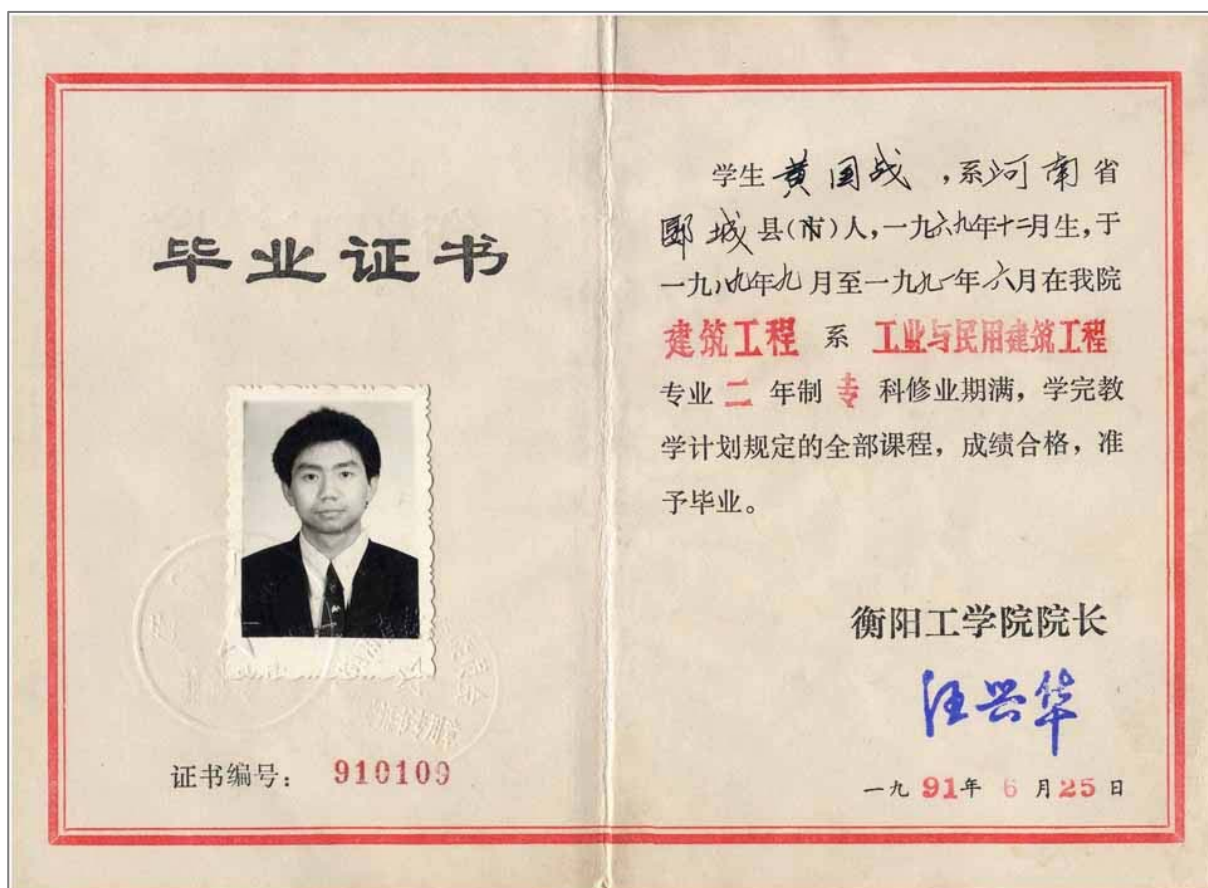 毕业证书
证书编号： 910109
学生黄国战，系河南省
郾城县（市）人，一九六九年十二月生，于
一九八九年九月至一九九一年六月在我院
建筑工程 系 工业与民用建筑工程
专业 二 年制 专 科修业期满，学完教
学计划规定的全部课程，成绩合格，准
予毕业。
衡阳工学院院长
汪兴华
一九91年 6 月25日